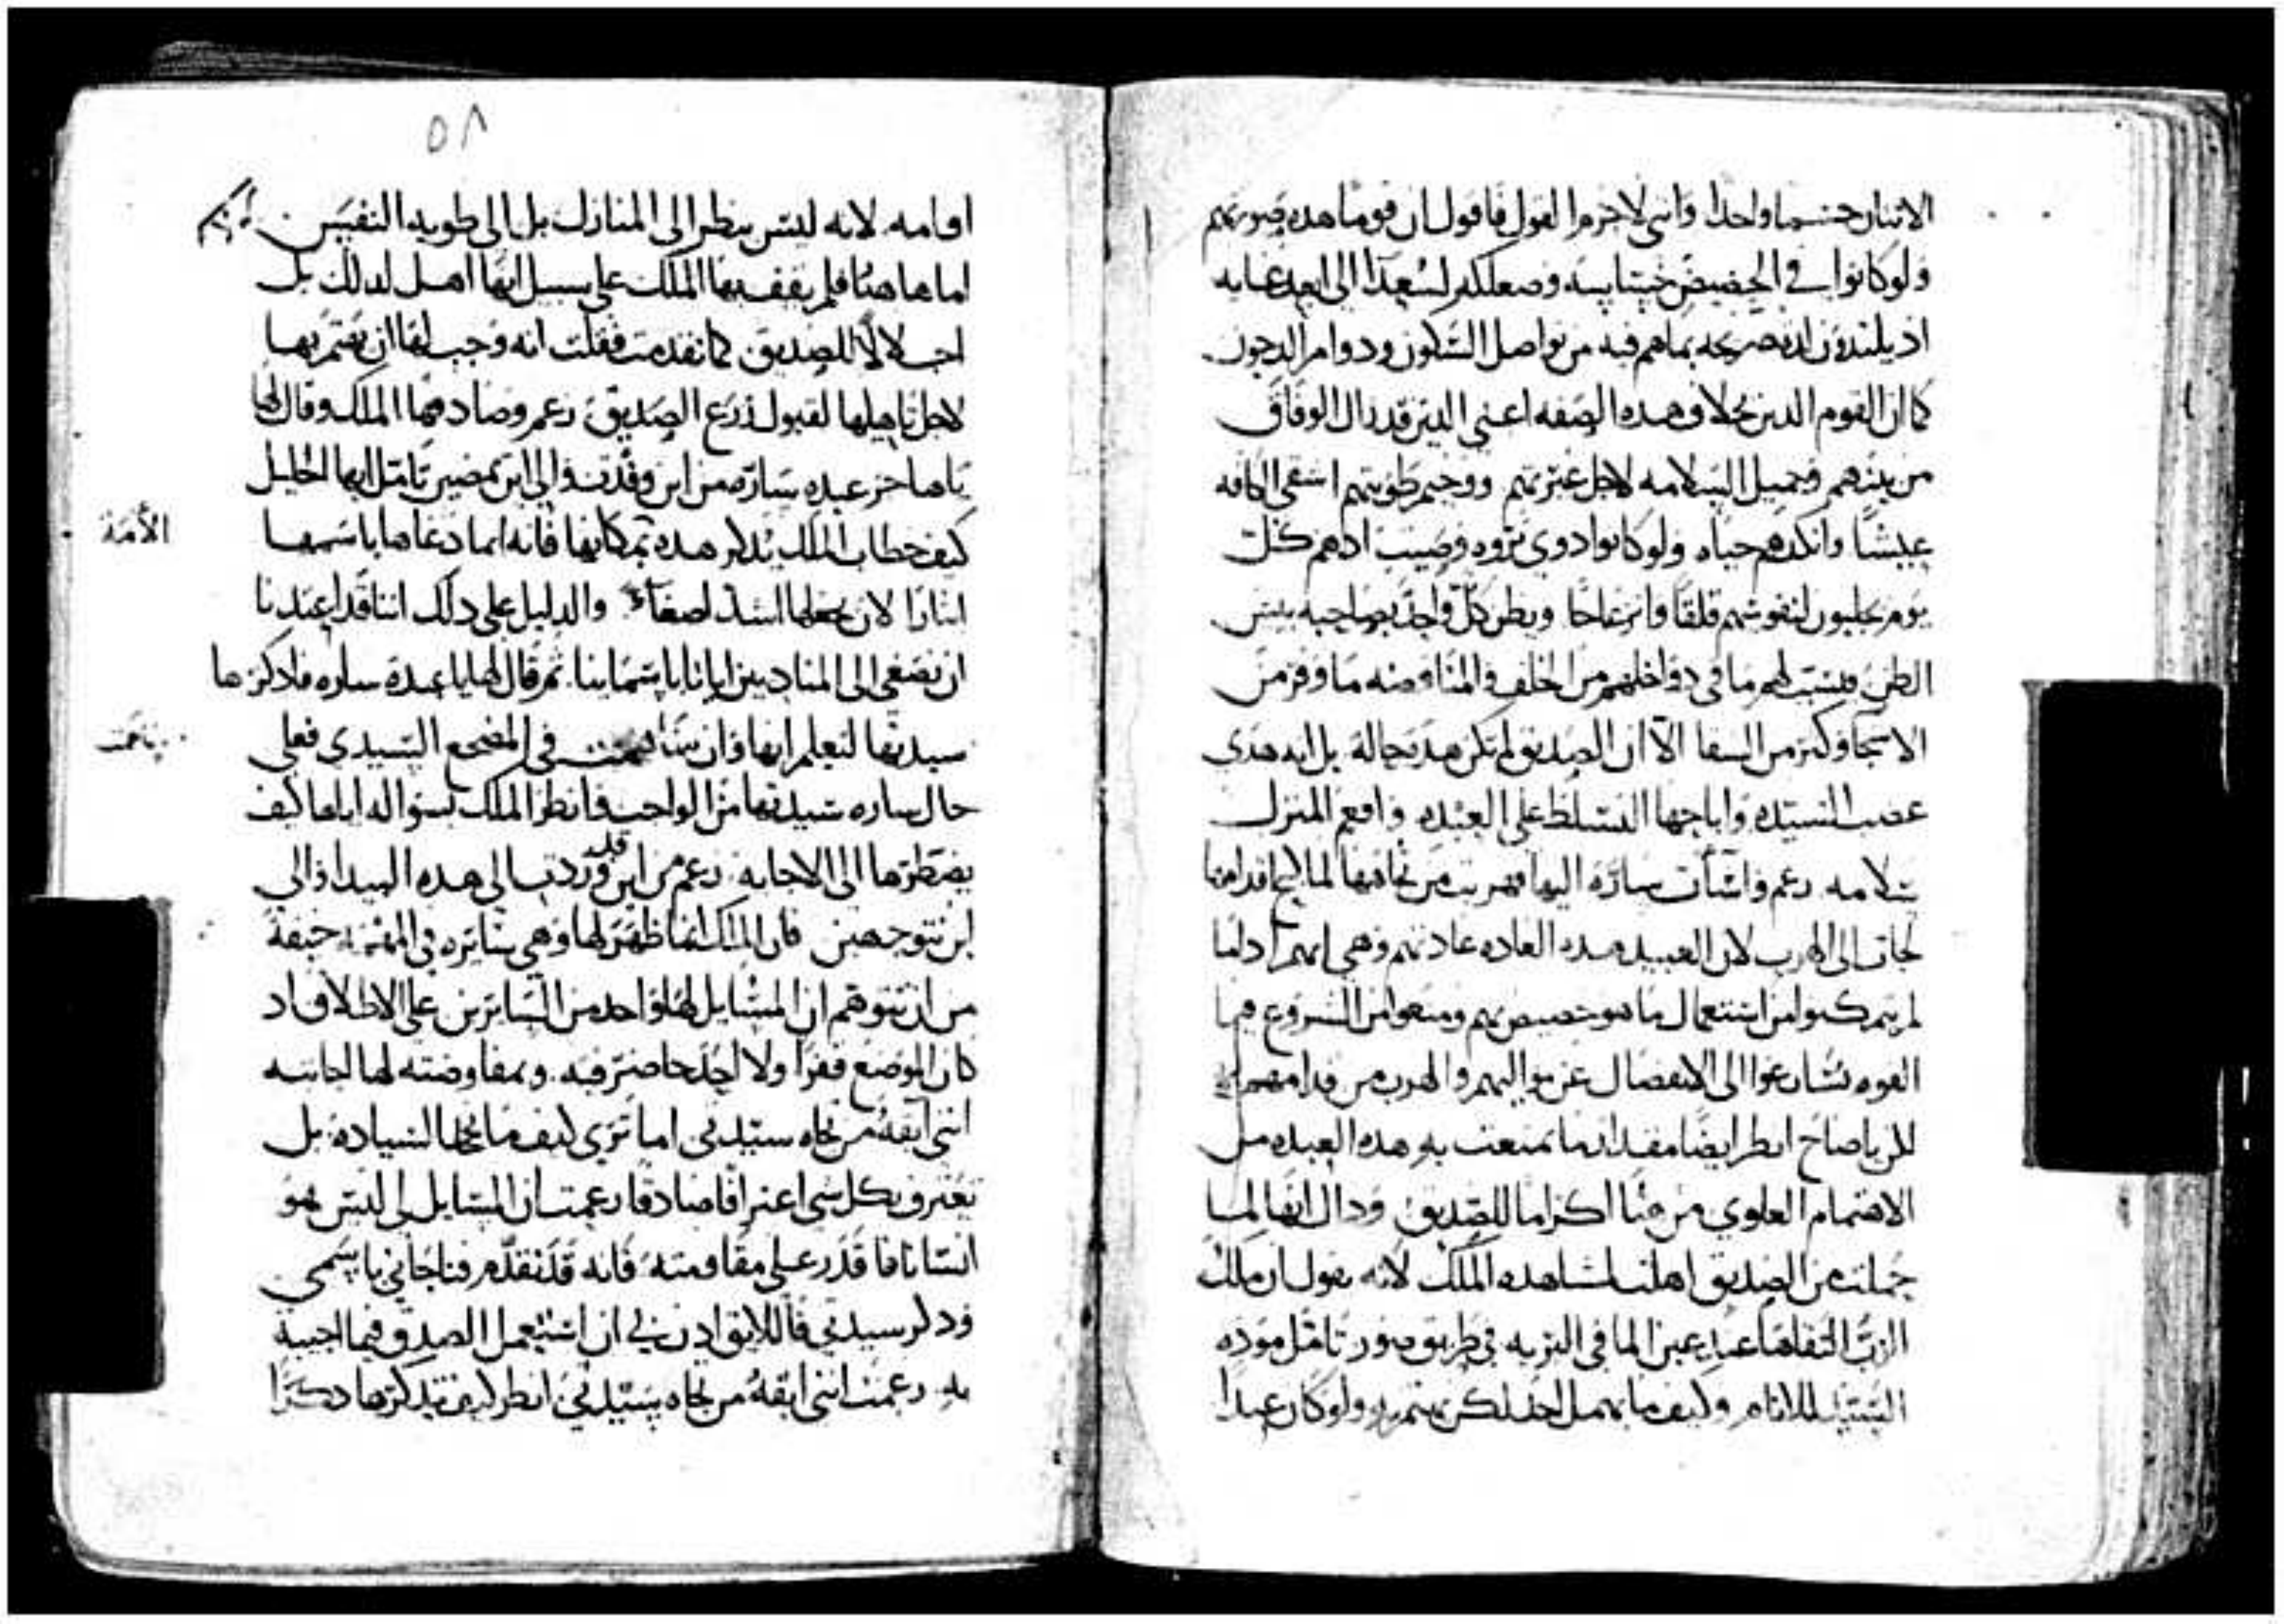 الاثنان جسما واحدا وانني لاجزم القول فاقول ان قوما هده صورتهم
ولو كانوا في الحضيض وصعلكه لسعدا الى ابعد غايه
اد يلتدون لده صريحه بماهم فيه من تواصل السكون ودوام
كما ان القوم الدين بخلاف هده الصفه اعني الدين قد زال الوفاق
من بينهم وجميل السلامه لاجل ووخيم طويتهم اشقى الكافه
عيشا وانكدهم حياه ولو كانوا دوي ثروه وصيت ادهم كل
يوم يجلبون لنفوسهم قلقا وانزعاجا ويظن كل واحد بصاحبه بيس
الظن فيسبب لهم ما في دواخلهم من الخلف والمناوضه ما وفر من
وكثر من السقا الا ان الصديق لم تكن هده حاله بل انه هدى
غضب السيده واباحها التسلط على العبده وافعم المنزل
سلامه زعم واسأت ساره اليها فهربت من تجاهها لما قدامها
لجات الى الهرب لان العبيد هده العاده عادتهم وهي انهم ادا ما
لم يتمكنوا من استعمال ما هو خصيص بهم ومنعوا من الشروع فيما
القوه سارعوا الى الانفصال عن مواليهم والهرب من قدامهم
لكن يا صاح انظر ايضا مقدار ما تمتعت به هده العبده من
الاهتمام العلوي من فنا اكراما للصديق ودال انها لما
حملت من الصديق اهلت لمشاهده الملك لانه يقول ان ملك
الرب التقاها عند عين الما في البريه في طريق صور تامل موده
السيد للانام وكيف ما يهمل احدا لكن ولو كان عبدا
٥٨
اقامه لانه ليس ينظر الى المنازل بل الى طويه النفس
اما هاهنا فلم يقف بها الملك على سبيل انها اهل لدلك بل
اجلالا للصديق كما تقدمت فقلت انه وجب لها ان يهتم بها
لاجل تاهيلها لقبول زرع الصديق زعم وصادفها الملك وقال لها
يا هاجر عبده ساره من اين وفدت والى اين تمضين تامل ايها الخليل
كيف خطاب الملك يدكر هده بمكانها فانه انما دعاها باسمها
الأمة
لان يجعلها اشد اصغاء والدليل على دلك اننا قد اعتدنا
ان نصغي الى المنادين ايانا باسماينا ثم قال لها يا عبده ساره فادكرها
سيدتها لتعلم انها وان ساهمت في المضجع السيدي فعلى
ناعمت
حال ساره سيدتها من الواجب فانظر الملك بسواله اياها كيف
يضطرها الى الاجابه زعم من اين قد وردت الى هده البيدا والى
اين تتوجهين فان الملك انما ظهر لها وهي سايره في خيفة
من ان تتوهم ان المسايل لها واحد من السايرين على الاطلاق اد
كان الموضع قفرا ولا احد حاضر فيه وبمفاوضته لها اجابته
انني ابقة من تجاه سيدتي اما ترى كيف ما تجحد السيادة بل
تعترف بكل شي اعترافا صادقا زعمت ان المسايل لي ليس هو
انسانا فاقدر على مقاومته فانه قد تقدم فناجاني باسمي
ودكر سيدتي فاللايق ادن بي ان استعمل الصدق فيما اجيبه
به زعمت انني ابقة من تجاه سيدتي انظر كيف تدكرها دكرا